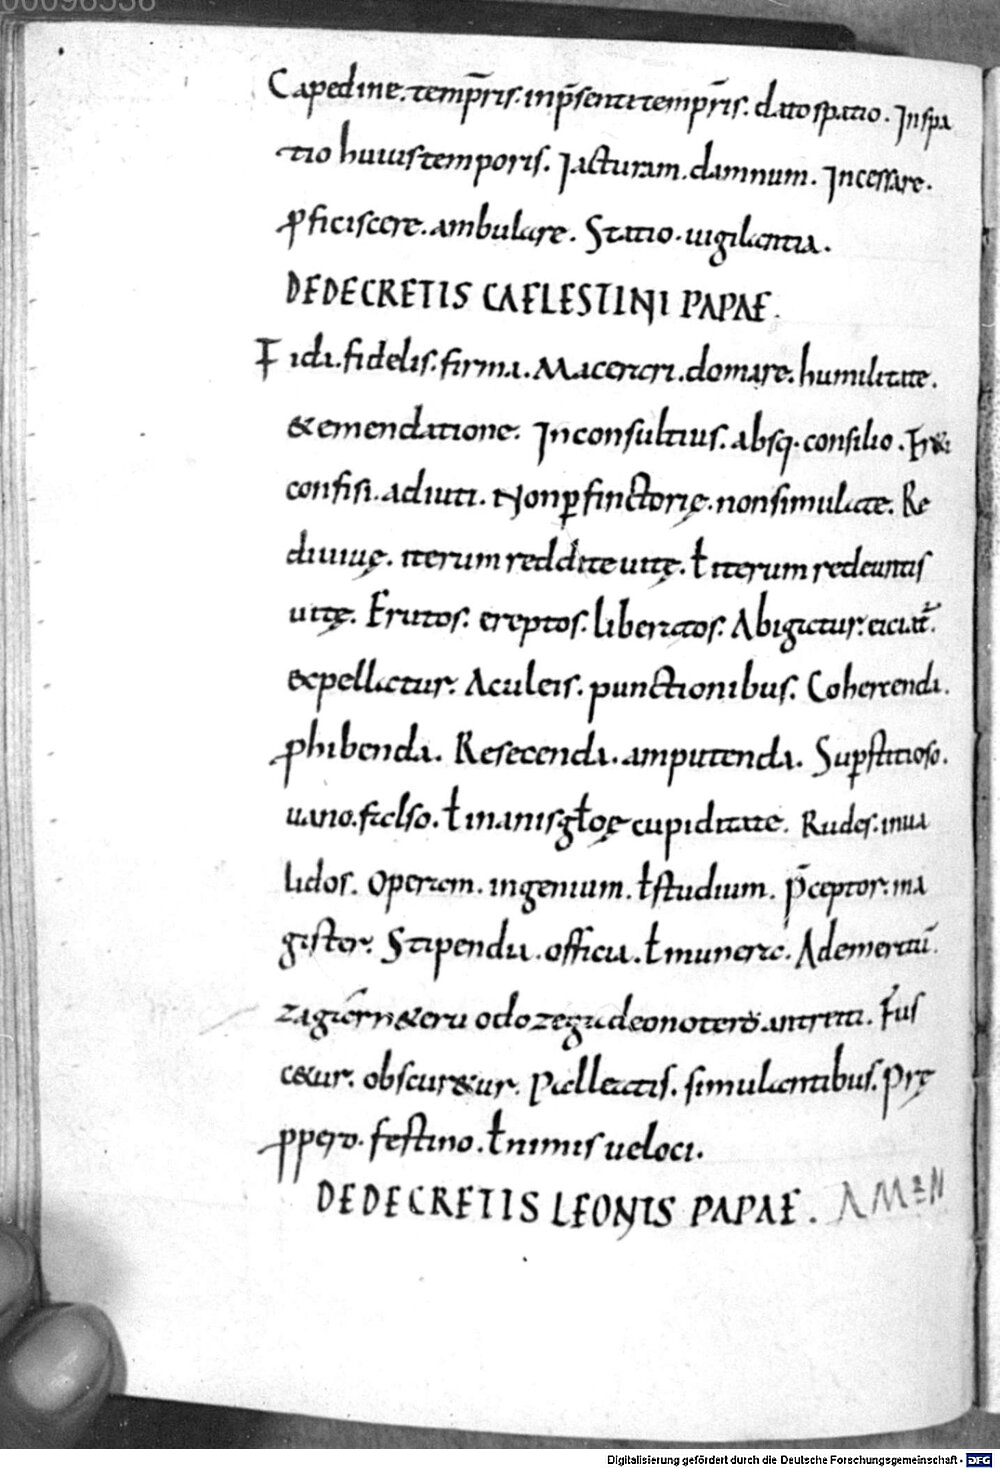 00096538
Capedine. temp̄ris. inp̄senti temp̄ris. dato spatio. Inspa
tio huius temporis. Iacturam. damnum. Incessare.
ꝓficiscere. ambulare. Statio. uigilantia.
DE DECRETIS CAELESTINI PAPAE.
Fida. fidelis. firma. Macerari. domare. humilitate.
& emendatione. Inconsultius. absq. consilio. Fr&i
confisi. adiuti. Non ꝑfinctorię. non simulate. Re
diuiuę. iterum reddite uitę. ł iterum redeuntis
uitę. Erutos. ereptos. liberatos. Abigatur. eiciat̄.
expellatur. Aculeis. punctionibus. Cohercenda.
ꝓhibenda. Resecenda. amputenda. Suꝑstitioso.
uano. falso. ł inanis głoę cupiditate. Rudes. inua
lidos. Operam. ingenium. ł studium. p̄ceptor. ma
gister. Stipendii. officii. ł munera. Ademeraū.
Fus
c&ur. obscur&ur. Palleatis. simulantibus. Prę
ꝓpero. festino. ł nimis ueloci.
DE DECRETIS LEONIS PAPAE. AMEN
Digitalisierung gefördert durch die Deutsche Forschungsgemeinschaft - DFG